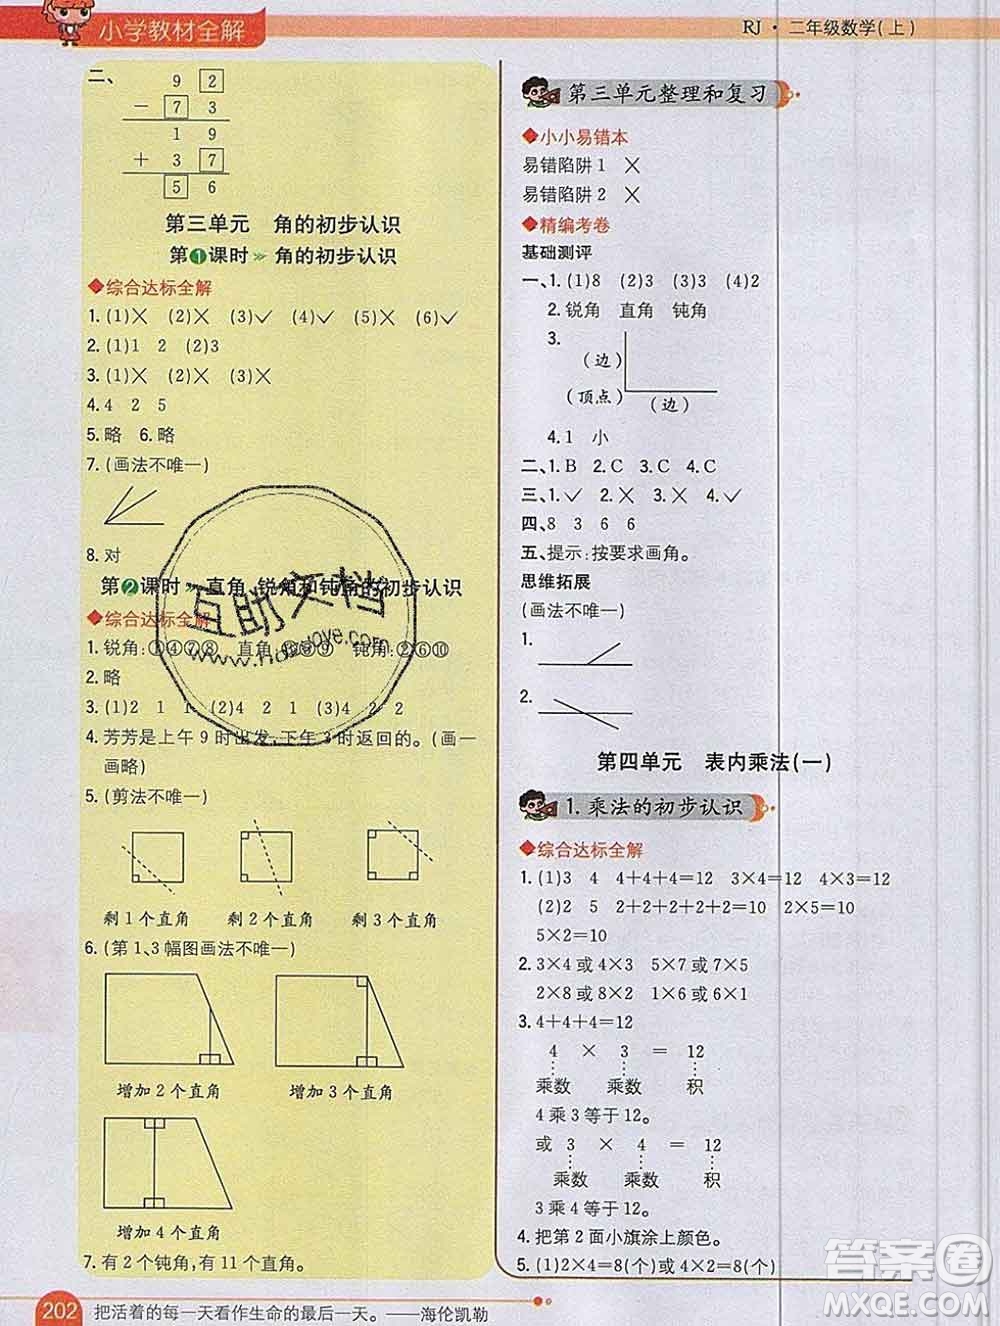 小学教材全解
RJ·二年级数学(上)
二、 9 2
－ 7 3
1 9
＋ 3 7
5 6
第三单元 角的初步认识
第1课时 » 角的初步认识
◆综合达标全解
1. (1)× (2)× (3)✓ (4)✓ (5)× (6)✓
2. (1)1 2 (2)3
3. (1)× (2)× (3)×
4. 4 2 5
5. 略 6. 略
7. (画法不唯一)
8. 对
第2课时 » 直角、锐角和钝角的初步认识
◆综合达标全解
1. 锐角:④⑦⑧ 直角:⑨ 钝角:②⑥⑩
2. 略
3. (1)2 1 1 (2)4 2 1 (3)4 2 2
4. 芳芳是上午9时出发,下午3时返回的。(画一
画略)
5. (剪法不唯一)
剩1个直角 剩2个直角 剩3个直角
6. (第1、3幅图画法不唯一)
增加2个直角 增加3个直角
增加4个直角
7. 有2个钝角,有11个直角。
202 把活着的每一天看作生命的最后一天。——海伦凯勒
第三单元整理和复习
◆小小易错本
易错陷阱1 ×
易错陷阱2 ×
◆精编考卷
基础测评
一、1. (1)8 (2)3 (3)3 (4)2
2. 锐角 直角 钝角
3.
(边)
(顶点)
(边)
4. 1 小
二、1. B 2. C 3. C 4. C
三、1. ✓ 2. × 3. × 4. ✓
四、8 3 6 6
五、提示:按要求画角。
思维拓展
(画法不唯一)
1.
2.
第四单元 表内乘法(一)
1. 乘法的初步认识
◆综合达标全解
1. (1)3 4 4+4+4=12 3×4=12 4×3=12
(2)2 5 2+2+2+2+2=10 2×5=10
5×2=10
2. 3×4或4×3 5×7或7×5
2×8或8×2 1×6或6×1
3. 4+4+4=12
4 × 3 = 12
乘数 乘数 积
4乘3等于12。
或 3 × 4 = 12
乘数 乘数 积
3乘4等于12。
4. 把第2面小旗涂上颜色。
5. (1)2×4=8(个)或4×2=8(个)
互助文档
答案圈
MXQE.COM